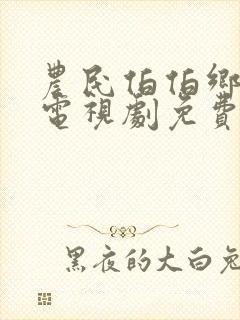 農民伯伯鄉
電視劇免費
黑夜的大白兔